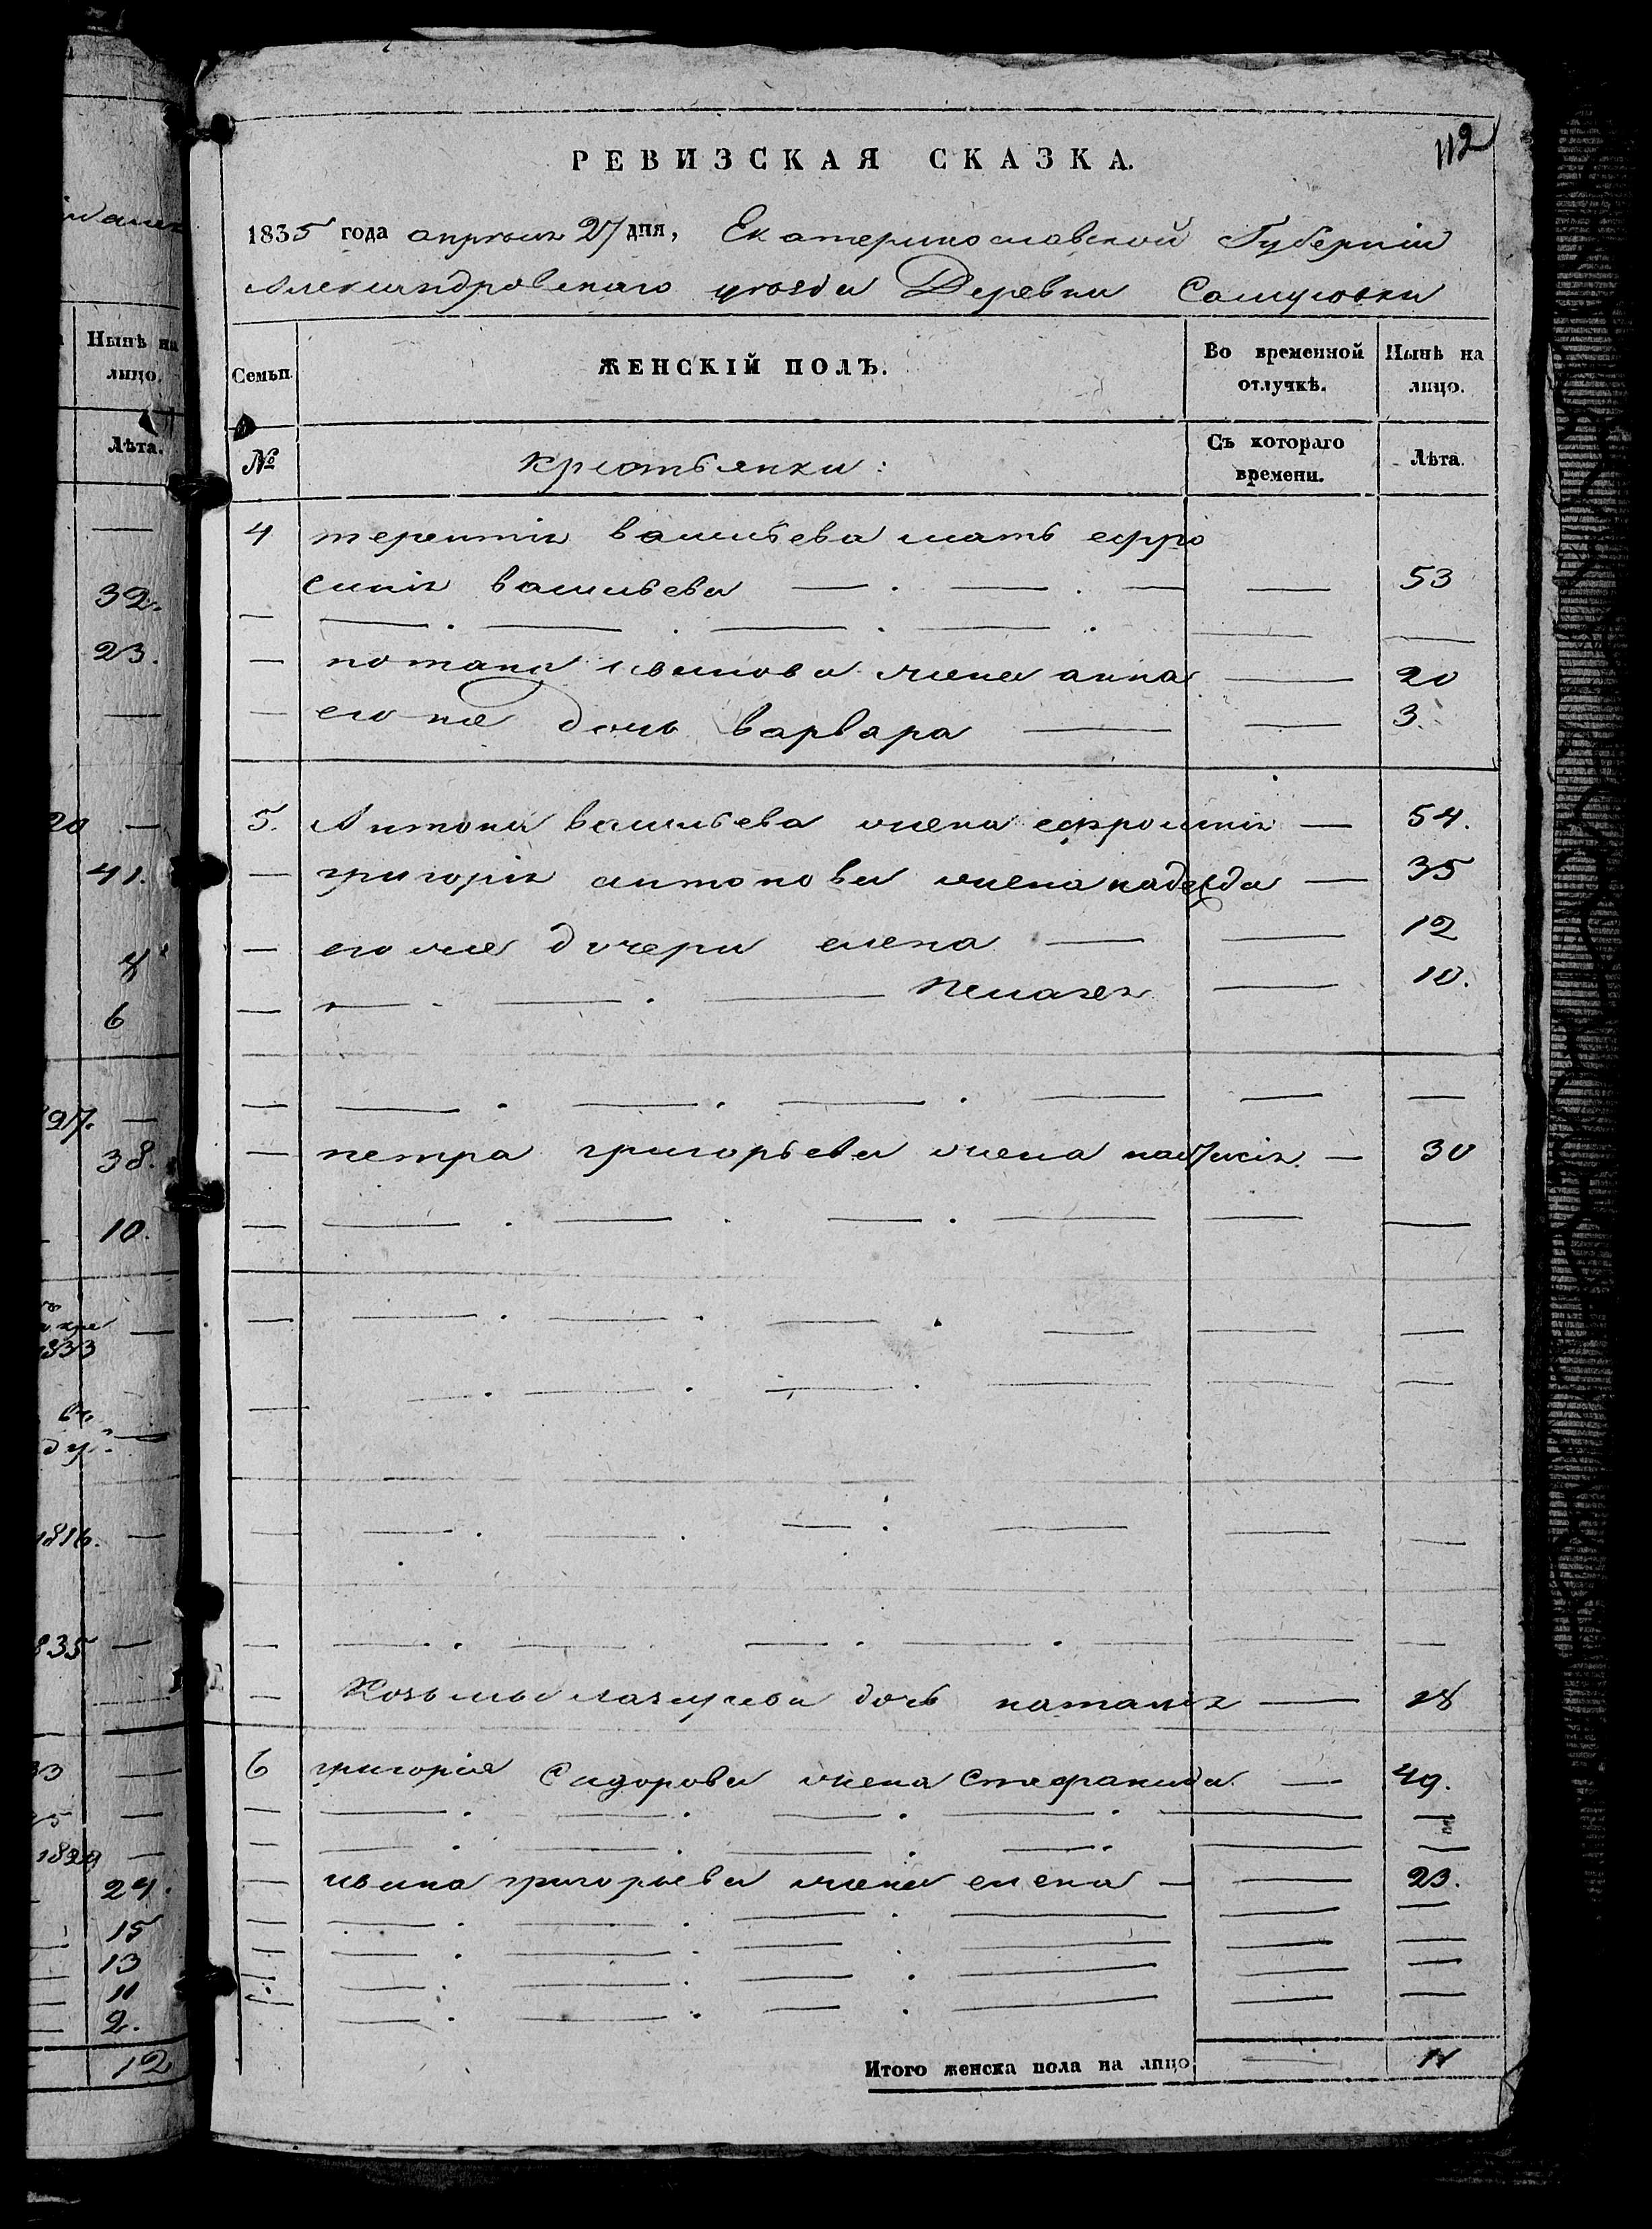 112
РЕВИЗСКАЯ СКАЗКА.
1835 года апреля 27 дня, Екатеринославской Губернiи
Александровскаго уезда Деревни
Семьи.
ЖЕНСКIЙ ПОЛЪ.
Во временной отлучкѣ.
Нынѣ на лицо.
№
крестьянки:
Съ котораго времени.
Лѣта.
4 терентiя васильева мать ефро
синiя васильева — — — — 53
— потапа иванова жена анна — 20
— его же дочь варвара — — 3.
5. Антона васильева жена ефросинiя — 54.
— григорiя антонова жена надежда — 35
— его же дочери елена — — 12
— — — — Пелагея — 10.
— петра григорьева жена — 30
— Козьмы дочь наталiя — 18
6 григорiя Сидорова жена Стефанида — 49.
— ивана григорьева жена елена — — 23.
Итого женска пола на лицо — 11
Нынѣ на
лицо.
Лѣта.
32.
23.
20 —
41.
6
97. —
38.
10.
1833
1816. —
835 —
33 —
24.
15
13
11
2.
12